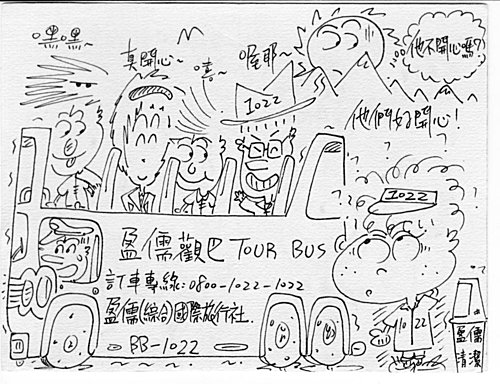 嘿嘿~
真開心~
嘻~
喔耶~
他不開心嗎?
他們好開心!
1022
1022
盈儒觀巴 TOUR BUS
訂車專線:0800-1022-1022
盈儒綜合國際旅行社.
BB-1022
10 22
盈儒
清潔